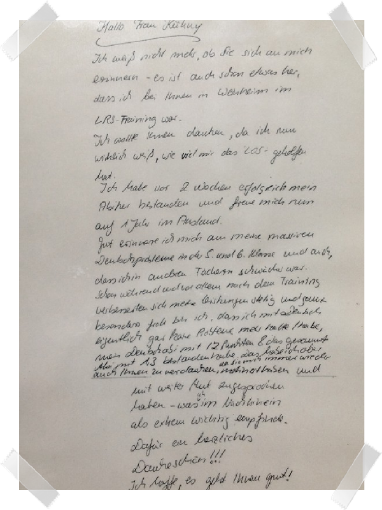 Hallo Frau
Ich weiß nicht mehr, ob Sie sich an mich
erinnern - es ist auch schon etwas her,
dass ich bei Ihnen in Weinheim im
LRS-Training war.
Ich wollte Ihnen danken, da ich nun
wirklich weiß, wie viel mir das LOS geholfen
hat.
Ich habe vor 2 Wochen erfolgreich mein
Abitur bestanden und freue mich nun
auf 1 Jahr im Ausland.
Gut erinnere ich mich an meine massiven
Deutschprobleme in der 5. und 6. Klasse und auch,
dass ich in anderen Fächern schwächer war.
Schon während und vor allem nach dem Training
verbesserten sich meine Leistungen stetig und ganz
besonders froh bin ich, dass ich mittlerweile
eigentlich gar keine Probleme mehr habe,
mein Deutschabi mit 12 Punkten &
Abi mit 1,3 bestanden habe, das habe ich aber
auch Ihnen zu verdanken immer wieder
und
mit weiter Mut zugesprochen
haben - was ich im Nachhinein
als extrem wichtig empfinde.
Dafür ein herzliches
Dankeschön!!!
Ich hoffe, es geht Ihnen gut!